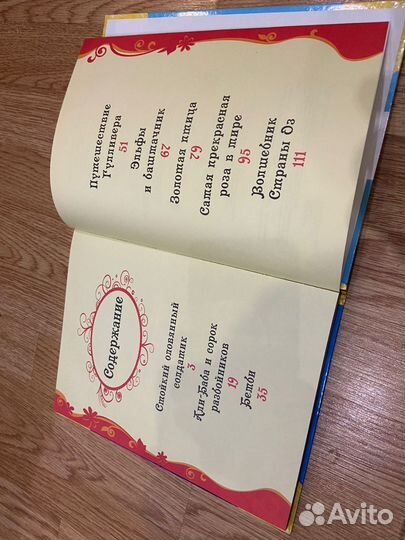 Содержание
Стойкий оловянный
солдатик
3
Али-Баба и сорок
разбойников
19
Бемби
35
Путешествие
Гулливера
51
Эльфы
и башмачник
Золотая птица
Самая прекрасная
роза в мире
95
Волшебник
Страны Оз
111
Avito